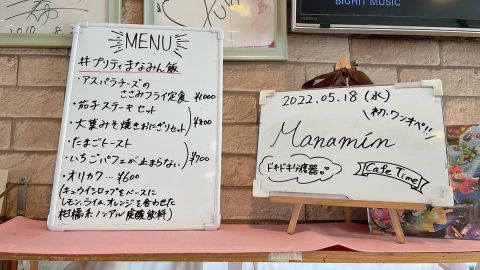 BIGHIT MUSIC
MENU
#プリティまなみん飯
・アスパラチーズの
ささみフライ定食 ¥1000
・茄子ステーキセット
・大葉みそ焼きおにぎりセット ¥800
・たまごトースト
・いちごパフェが止まらない ¥700
・オリカク… ¥600
(キュウイシロップをベースに
レモン、ライム、オレンジを合わせた
柑橘系ノンアル炭酸飲料)
2022.05.18(水)
初・ワンオペ!!
Manamin
Cafe Time